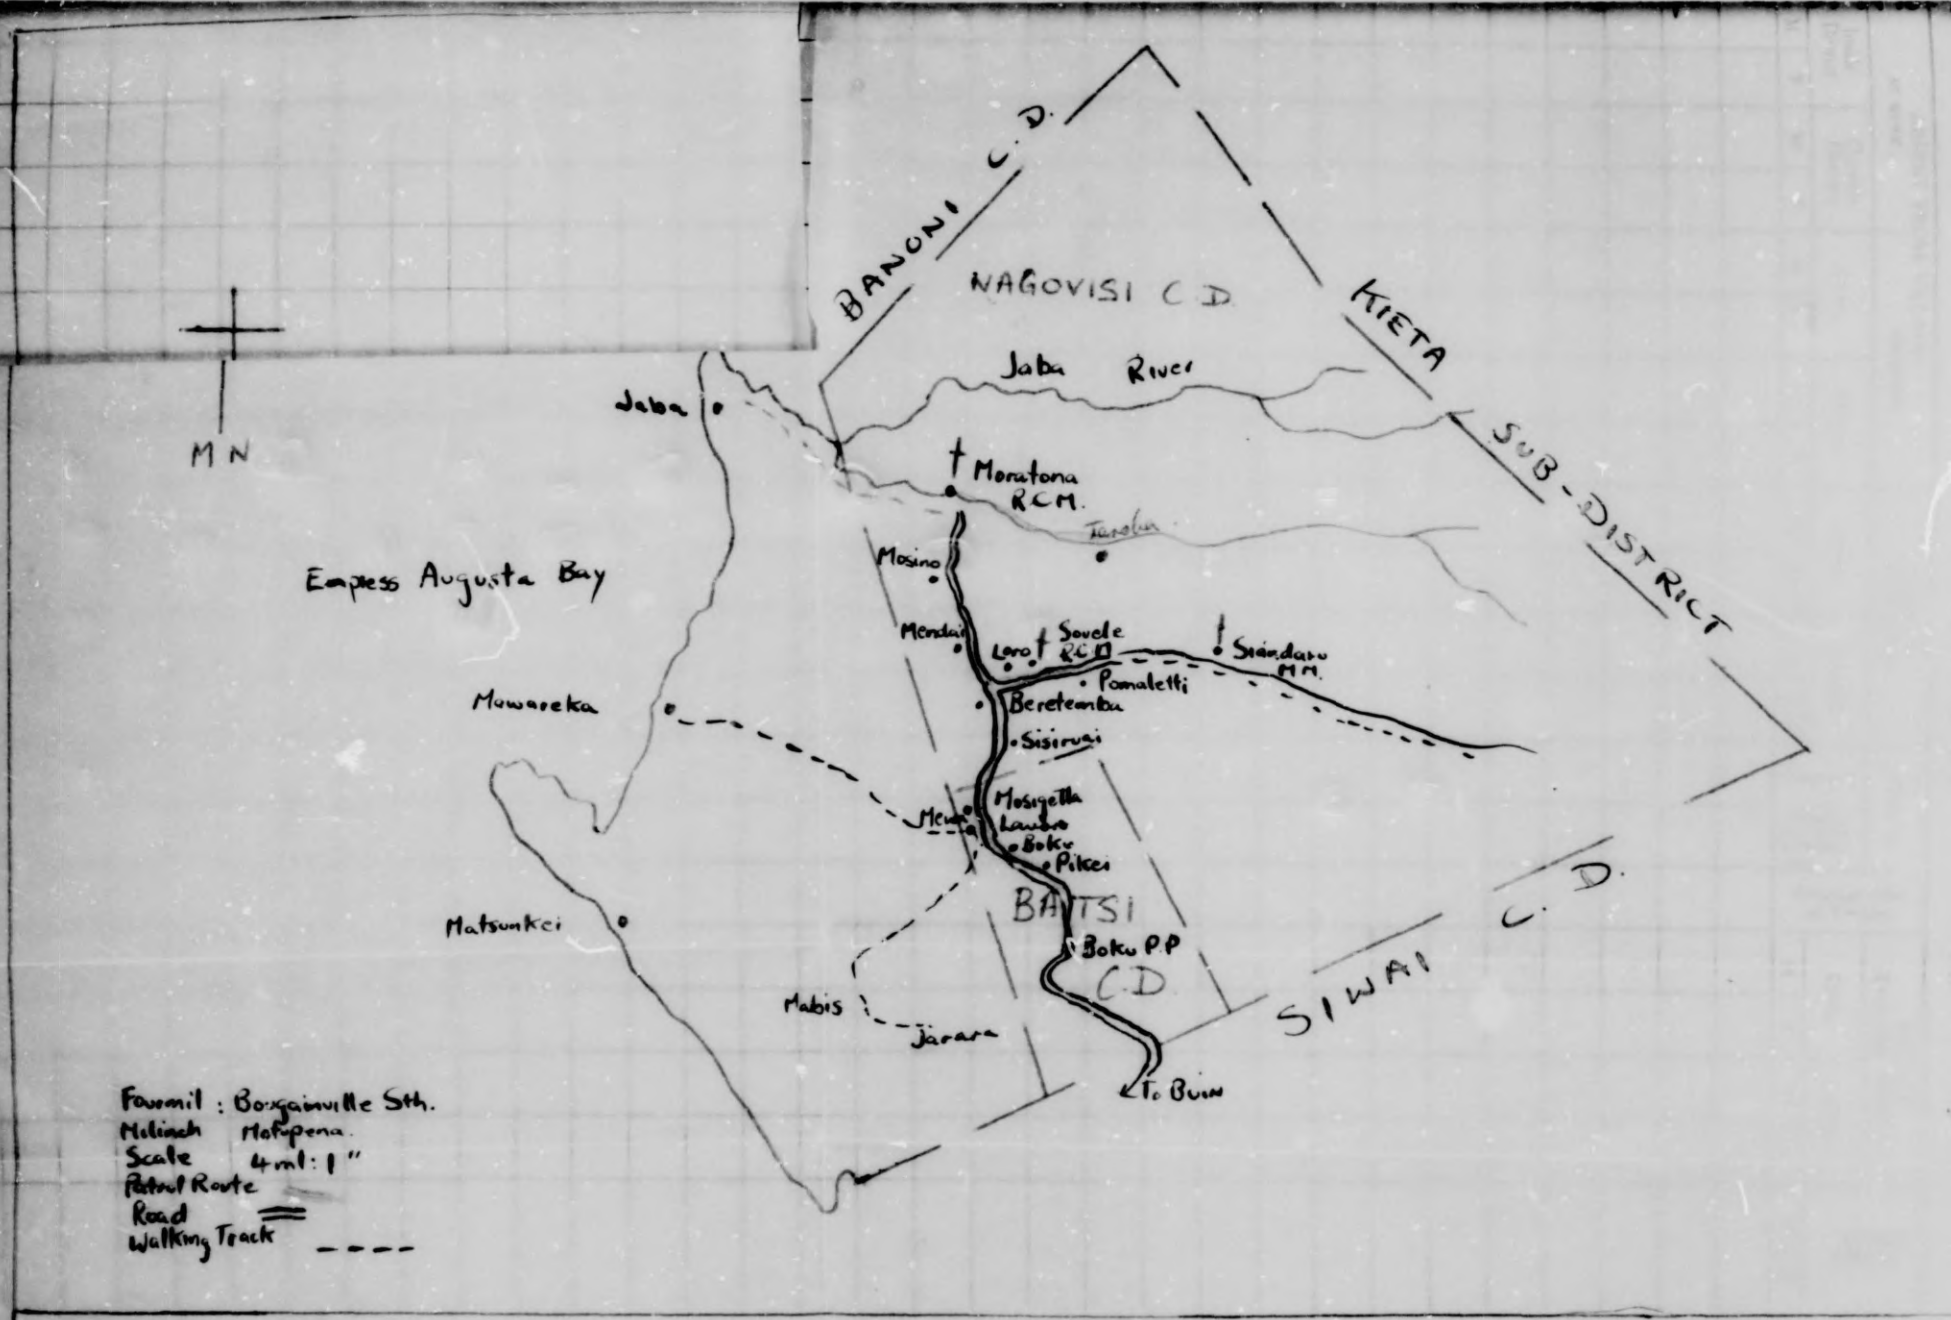 BANONI C. D.
NAGOVISI C D
KIETA SUB-DISTRICT
Jaba River
Jaba
M N
Moratona
R.C.M.
Mosino
Empress Augusta Bay
Mendai
Loro
Sovele
R.C.M
Siandaro
M M.
Pomaletti
Mawareka
Beretemba
Sisiruai
Mosigetta
Lavoro
Boku
Pikei
BAITSI
C.D.
Matsunkei
Boku P.P
SIWAI C. D.
Mabis
Jarara
To BUIN
Fourmil : Bougainville Sth.
Milinch Motupena.
Scale 4 ml : 1"
Patrol Route
Road
Walking Track